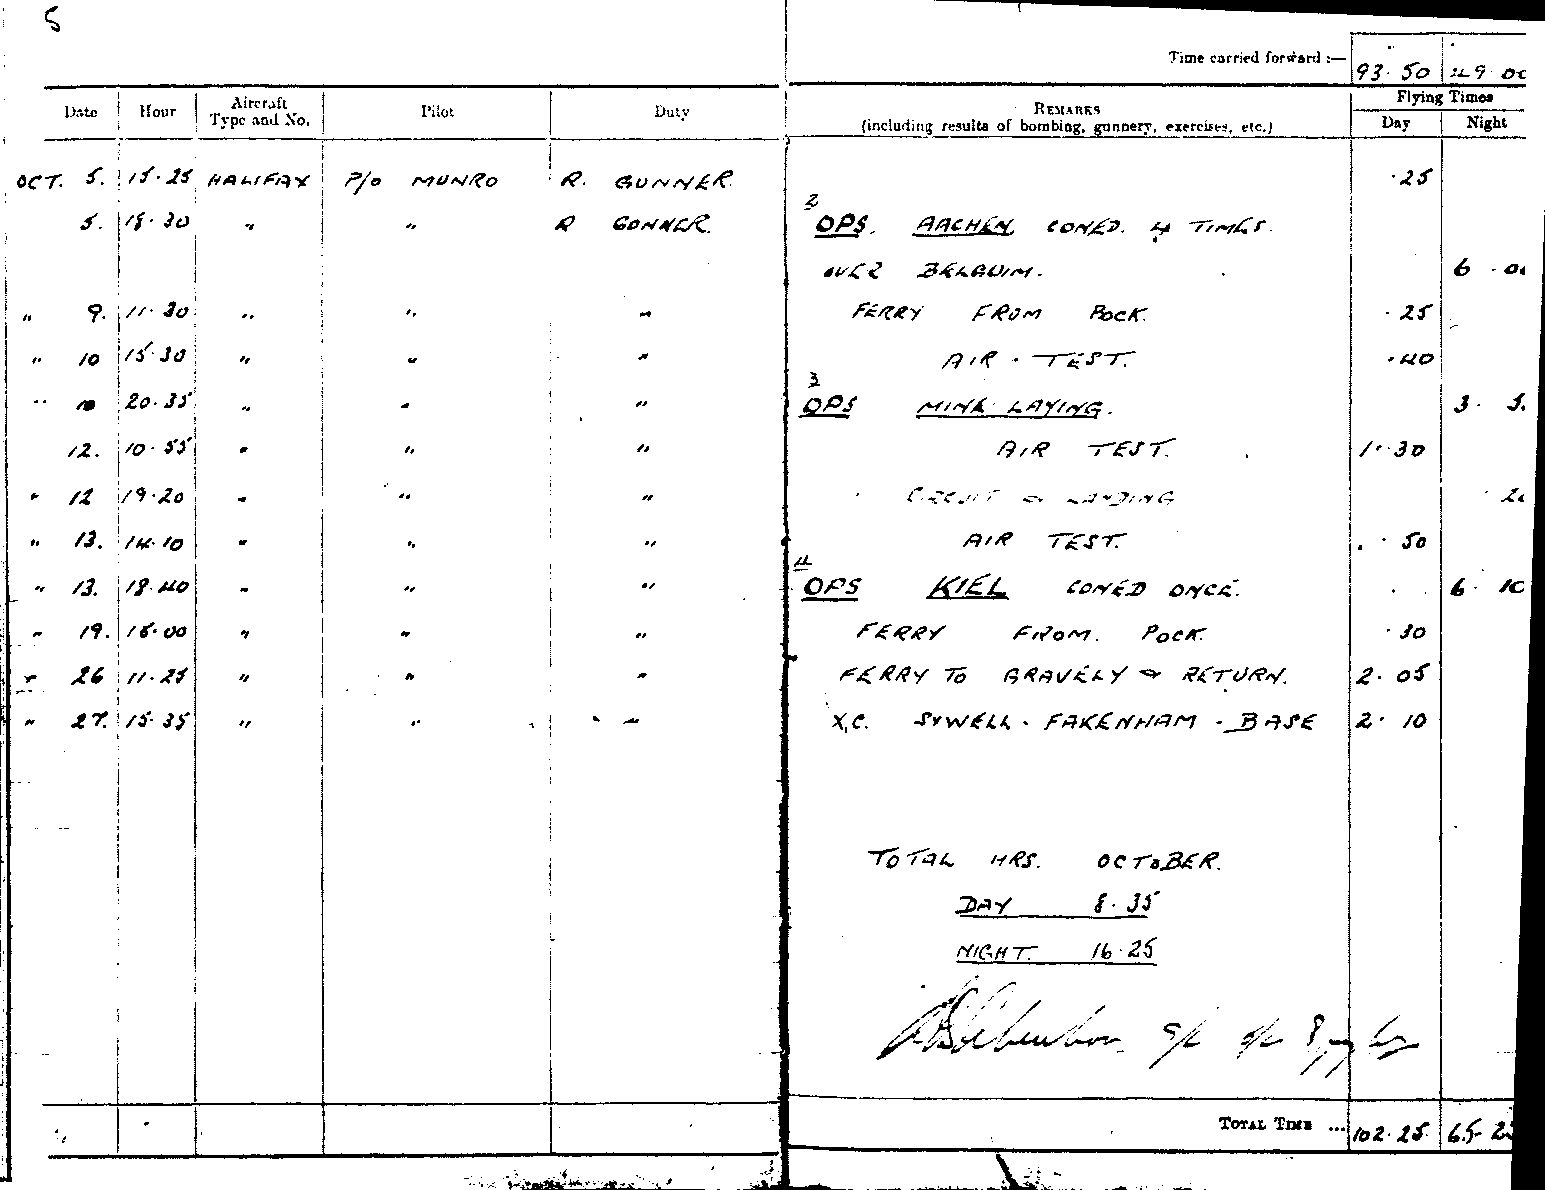 5
Time carried forward :— 93.50 49.00
Date Hour Aircraft Type and No. Pilot Duty REMARKS (including results of bombing, gunnery, exercises, etc.) Flying Times Day Night
OCT. 5. 15.25 HALIFAX P/O MUNRO R. GUNNER .25
5. 18.30 " " R GUNNER. 2 OPS. AACHEN CONED. 4 TIMES.
OVER BELGUIM. 6 .0
" 9. 11.30 " " " FERRY FROM POCK. .25
" 10 15.30 " " " AIR . TEST. .40
" 10 20.35 " " " 3 OPS MINE LAYING. 3. 5.
12. 10.55 " " " AIR TEST. 1.30
" 12 19.20 " " " CIRCUIT & LANDING .2
" 13. 14.10 " " " AIR TEST. .50
" 13. 18.40 " " " 4 OPS KIEL CONED ONCE. 6. 10
" 19. 16.00 " " " FERRY FROM. POCK. .30
" 26 11.25 " " " FERRY TO GRAVELY & RETURN. 2.05
" 27. 15.35 " " " X.C. SYWELL - FAKENHAM - BASE 2.10
TOTAL HRS. OCTOBER.
DAY 8.35
NIGHT. 16.25
TOTAL TIME ... 102.25 65.25